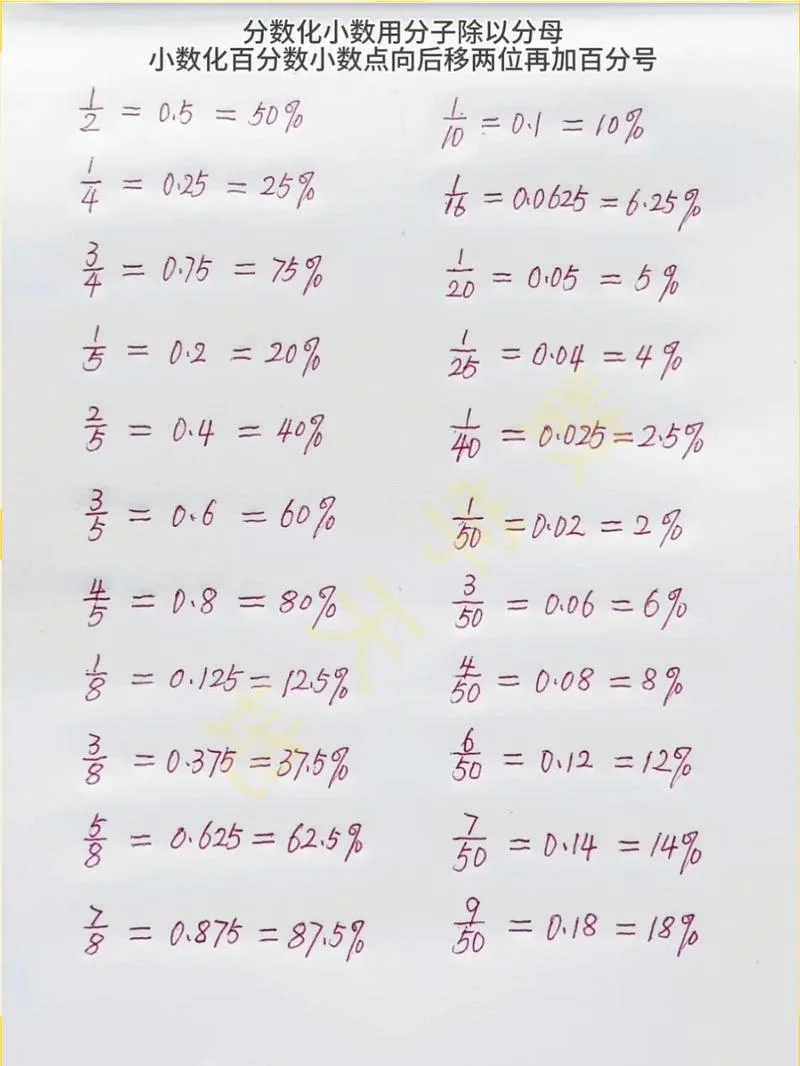 分数化小数用分子除以分母
小数化百分数小数点向后移两位再加百分号
1/2 = 0.5 = 50%
1/4 = 0.25 = 25%
3/4 = 0.75 = 75%
1/5 = 0.2 = 20%
2/5 = 0.4 = 40%
3/5 = 0.6 = 60%
4/5 = 0.8 = 80%
1/8 = 0.125 = 12.5%
3/8 = 0.375 = 37.5%
5/8 = 0.625 = 62.5%
7/8 = 0.875 = 87.5%
1/10 = 0.1 = 10%
1/16 = 0.0625 = 6.25%
1/20 = 0.05 = 5%
1/25 = 0.04 = 4%
1/40 = 0.025 = 2.5%
1/50 = 0.02 = 2%
3/50 = 0.06 = 6%
4/50 = 0.08 = 8%
6/50 = 0.12 = 12%
7/50 = 0.14 = 14%
9/50 = 0.18 = 18%